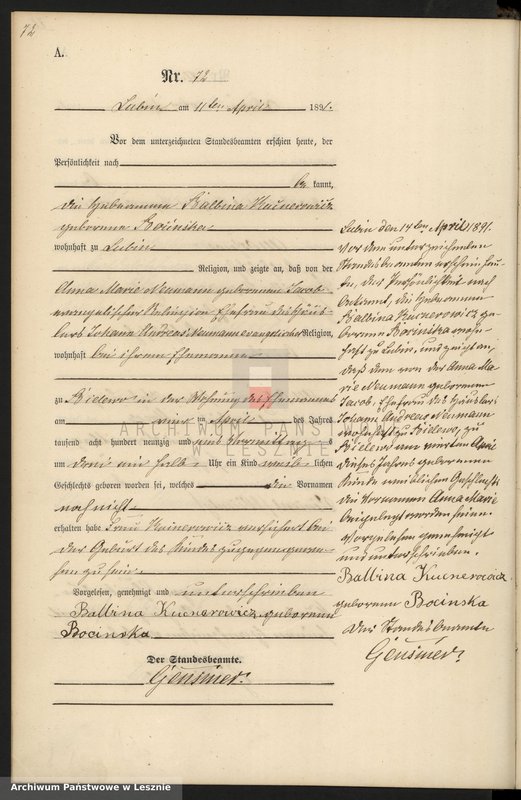 72
A.
Nr. 72
Lubin am 11ten April 1891.
Vor dem unterzeichneten Standesbeamten erschien heute, der
Persönlichkeit nach
be kannt,
die Hebeamme Balbina Kucnerowicz
geborene Bocinska
wohnhaft zu Lubin
Religion, und zeigte an, daß von der
Anna Marie Neumann geborenen Jacob
evangelischer Religion Ehefrau des Häus-
lers Johann Andreas Neumann evangelischer Religion,
wohnhaft bei ihrem Ehemanne
zu Bielewo in der Wohnung des Ehemannes
am vier ten April des Jahres
tausend acht hundert neunzig und eins Vormittag s
um drei ein halb Uhr ein Kind weib lichen
Geschlechts geboren worden sei, welches die Vornamen
noch nicht
erhalten habe Frau Kucnerowicz versichert bei
der Geburt des Kindes zugegen gewe-
sen zu sein.
Vorgelesen, genehmigt und unterschrieben
Balbina Kucnerowicz geborene
Bocinska
Der Standesbeamte.
Geusmer
Lubin den 14ten April 1891.
Vor dem unterzeichneten
Standesbeamten erschien heu-
te, der Persönlichkeit nach
bekannt, die Hebeamme
Balbina Kucnerowicz ge-
borene Bocinska wohn-
haft zu Lubin, und zeigte an,
daß dem von der Anna Ma-
rie Neumann geborene
Jacob, Ehefrau des Häuslers
Johann Andreas Neumann
wohnhaft zu Bielewo, zu
Bielewo am vierten April
dieses Jahres geborenen
Kinde weiblichen Geschlechts
die Vornamen Anna Marie
beigelegt worden seien.
Vorgelesen genehmigt
und unterschrieben.
Balbina Kucnerowicz
geborene Bocinska
Der Standesbeamte
Geusmer
ARCHIWUM PAŃSTWOWE
W LESZNIE
Archiwum Państwowe w Lesznie